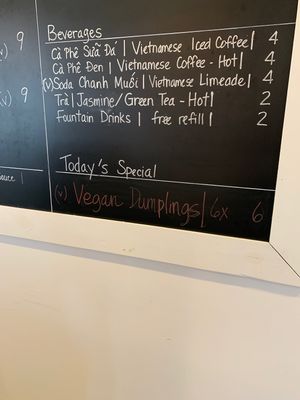 (v) 9
(v) 9
Beverages
Cà Phê Sữa Đá | Vietnamese Iced Coffee | 4
Cà Phê Đen | Vietnamese Coffee - Hot | 4
(v) Soda Chanh Muối | Vietnamese Limeade | 4
Trà | Jasmine/Green Tea - Hot | 2
Fountain Drinks | free refill | 2
Today's Special
(v) Vegan Dumplings | 6x 6